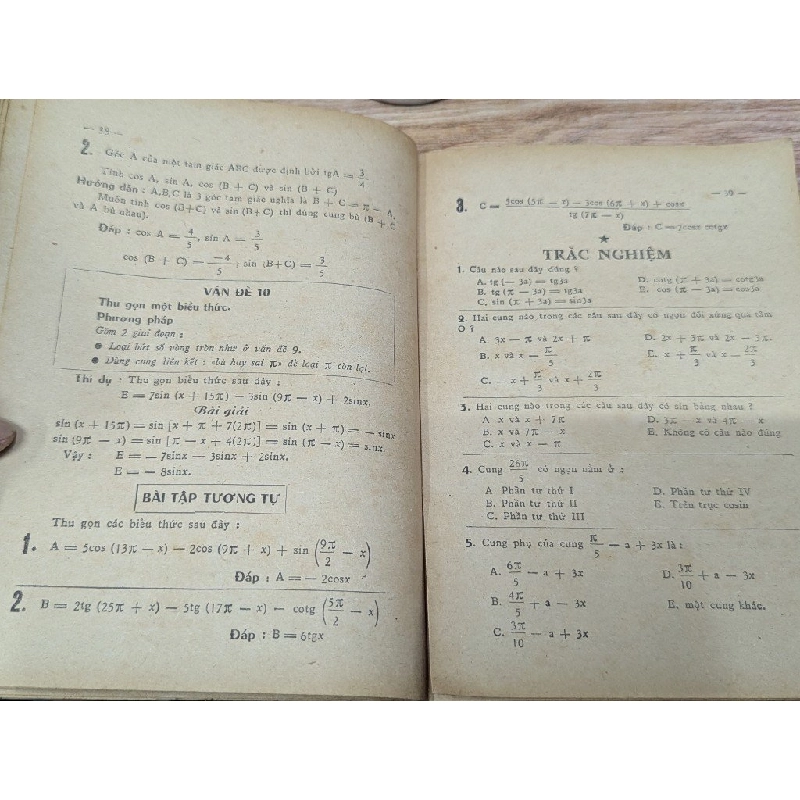 — 39 —
2. Góc A của một tam giác ABC được định bởi tgA = 3/4
Tính cos A, sin A, cos (B + C) và sin (B + C)
Hướng dẫn : A,B,C là 3 góc tam giác nghĩa là B + C = π − A.
Muốn tính cos (B+C) và sin (B+C) thì dùng cung bù (B +
và A bù nhau).
Đáp : cos A = 4/5, sin A = 3/5
cos (B + C) = −4/5 ; sin (B+C) = 3/5
VẤN ĐỀ 10
Thu gọn một biểu thức.
Phương pháp
Gồm 2 giai đoạn :
● Loại bớt số vòng tròn như ở vấn đề 9.
● Dùng cung liên kết : «bù huy sai π» để loại π còn lại.
Thí dụ : Thu gọn biểu thức sau đây :
E = 7sin (x + 15π) − 3sin (9π − x) + 2sinx.
Bài giải
sin (x + 15π) = sin [x + π + 7(2π)] = sin (x + π) = − sinx
sin (9π − x) = sin [π − x + 4(2π)] = sin (π − x) = sinx.
Vậy : E = − 7sinx − 3sinx + 2sinx.
E = − 8sinx.
BÀI TẬP TƯƠNG TỰ
Thu gọn các biểu thức sau đây :
1. A = 5cos (13π − x) − 2cos (9π + x) + sin (9π/2 − x)
Đáp : A = − 2cosx
2. B = 2tg (25π + x) − 5tg (17π − x) − cotg (5π/2 − x)
Đáp : B = 6tgx
3. C = 5cos (5π − x) − 3cos (6π + x) + cosx / tg (7π − x)
Đáp : C = 7cosx cotgx
★
TRẮC NGHIỆM
1. Câu nào sau đây đúng ?
A. tg (− 3a) = tg3a
D. cotg (π + 3a) = cotg3a
B. tg (π − 3a) = tg3a
E. cos (π − 3a) = cos3a
C. sin (π + 3a) = sin3a
2. Hai cung nào trong các câu sau đây có ngọn đối xứng qua tâm
O ?
A. 3x − π và 2x + π
D. 2x + 3π và 2x − 3π.
B. x và x − π/3
E. x + π/3 và x − 2π/3
C. − x + π/3 và x + 2π/3
3. Hai cung nào trong các câu sau đây có sin bằng nhau ?
A. x và x + 7π
D. 3π − x và 4π − x
B. x và 7π − x
E. Không có câu nào đúng
C. x và x − π
4. Cung 26π/5 có ngọn nằm ở :
A. Phần tư thứ I
D. Phần tư thứ IV
B. Phần tư thứ II
E. Trên trục cosin
C. Phần tư thứ III
5. Cung phụ của cung π/5 − a + 3x là :
A. 6π/5 − a + 3x
D. 3π/10 + a − 3x
B. 4π/5 + a − 3x
E. một cung khác.
C. 3π/10 − a + 3x